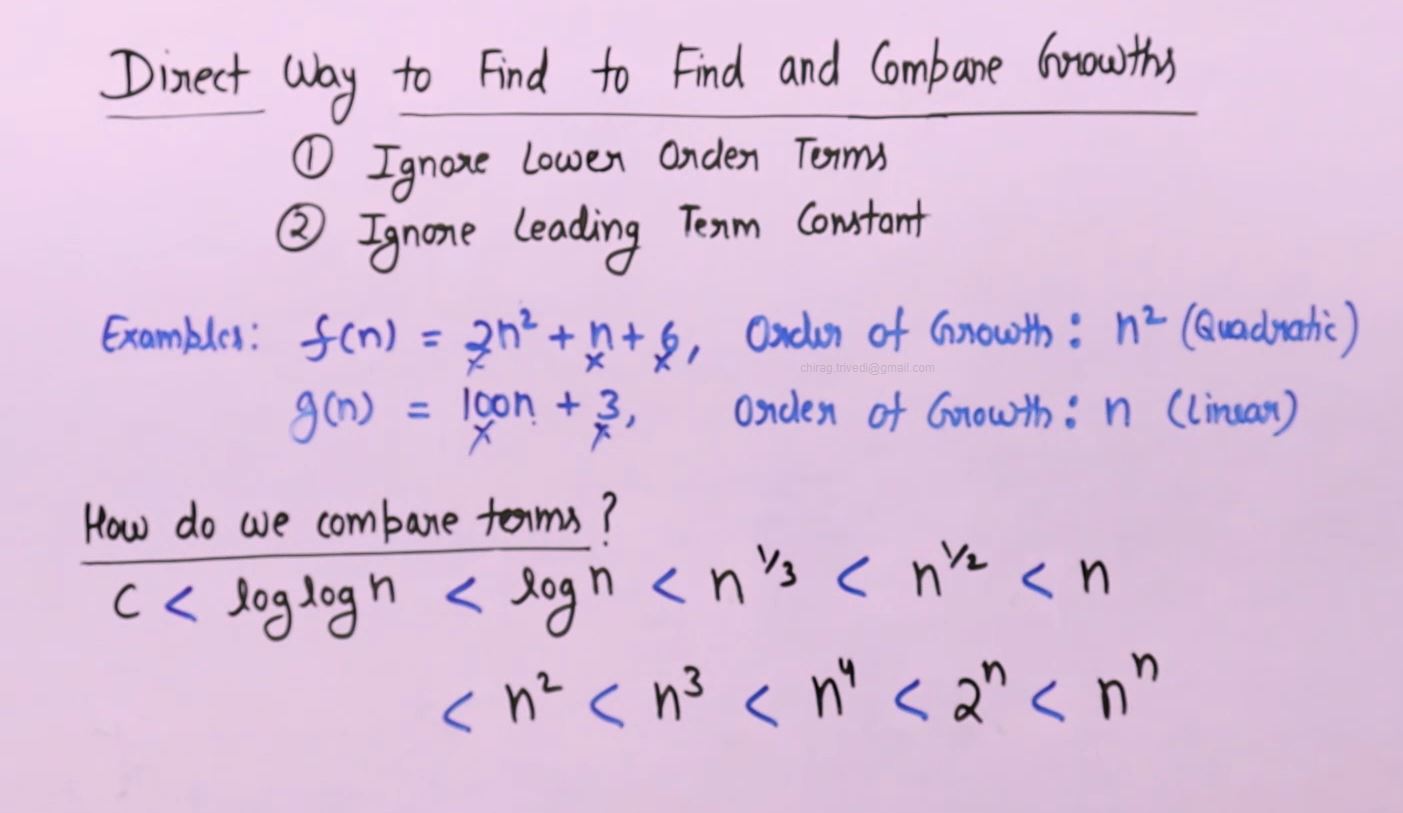 Direct Way to Find to Find and Compare Growths
① Ignore Lower Order Terms
② Ignore Leading Term Constant
Examples: f(n) = 2n² + n + 6, Order of Growth: n² (Quadratic)
chirag.trivedi@gmail.com
g(n) = 100n + 3, Order of Growth: n (Linear)
How do we compare terms?
C < log log n < log n < n^1/3 < n^1/2 < n
< n² < n³ < n⁴ < 2ⁿ < nⁿ